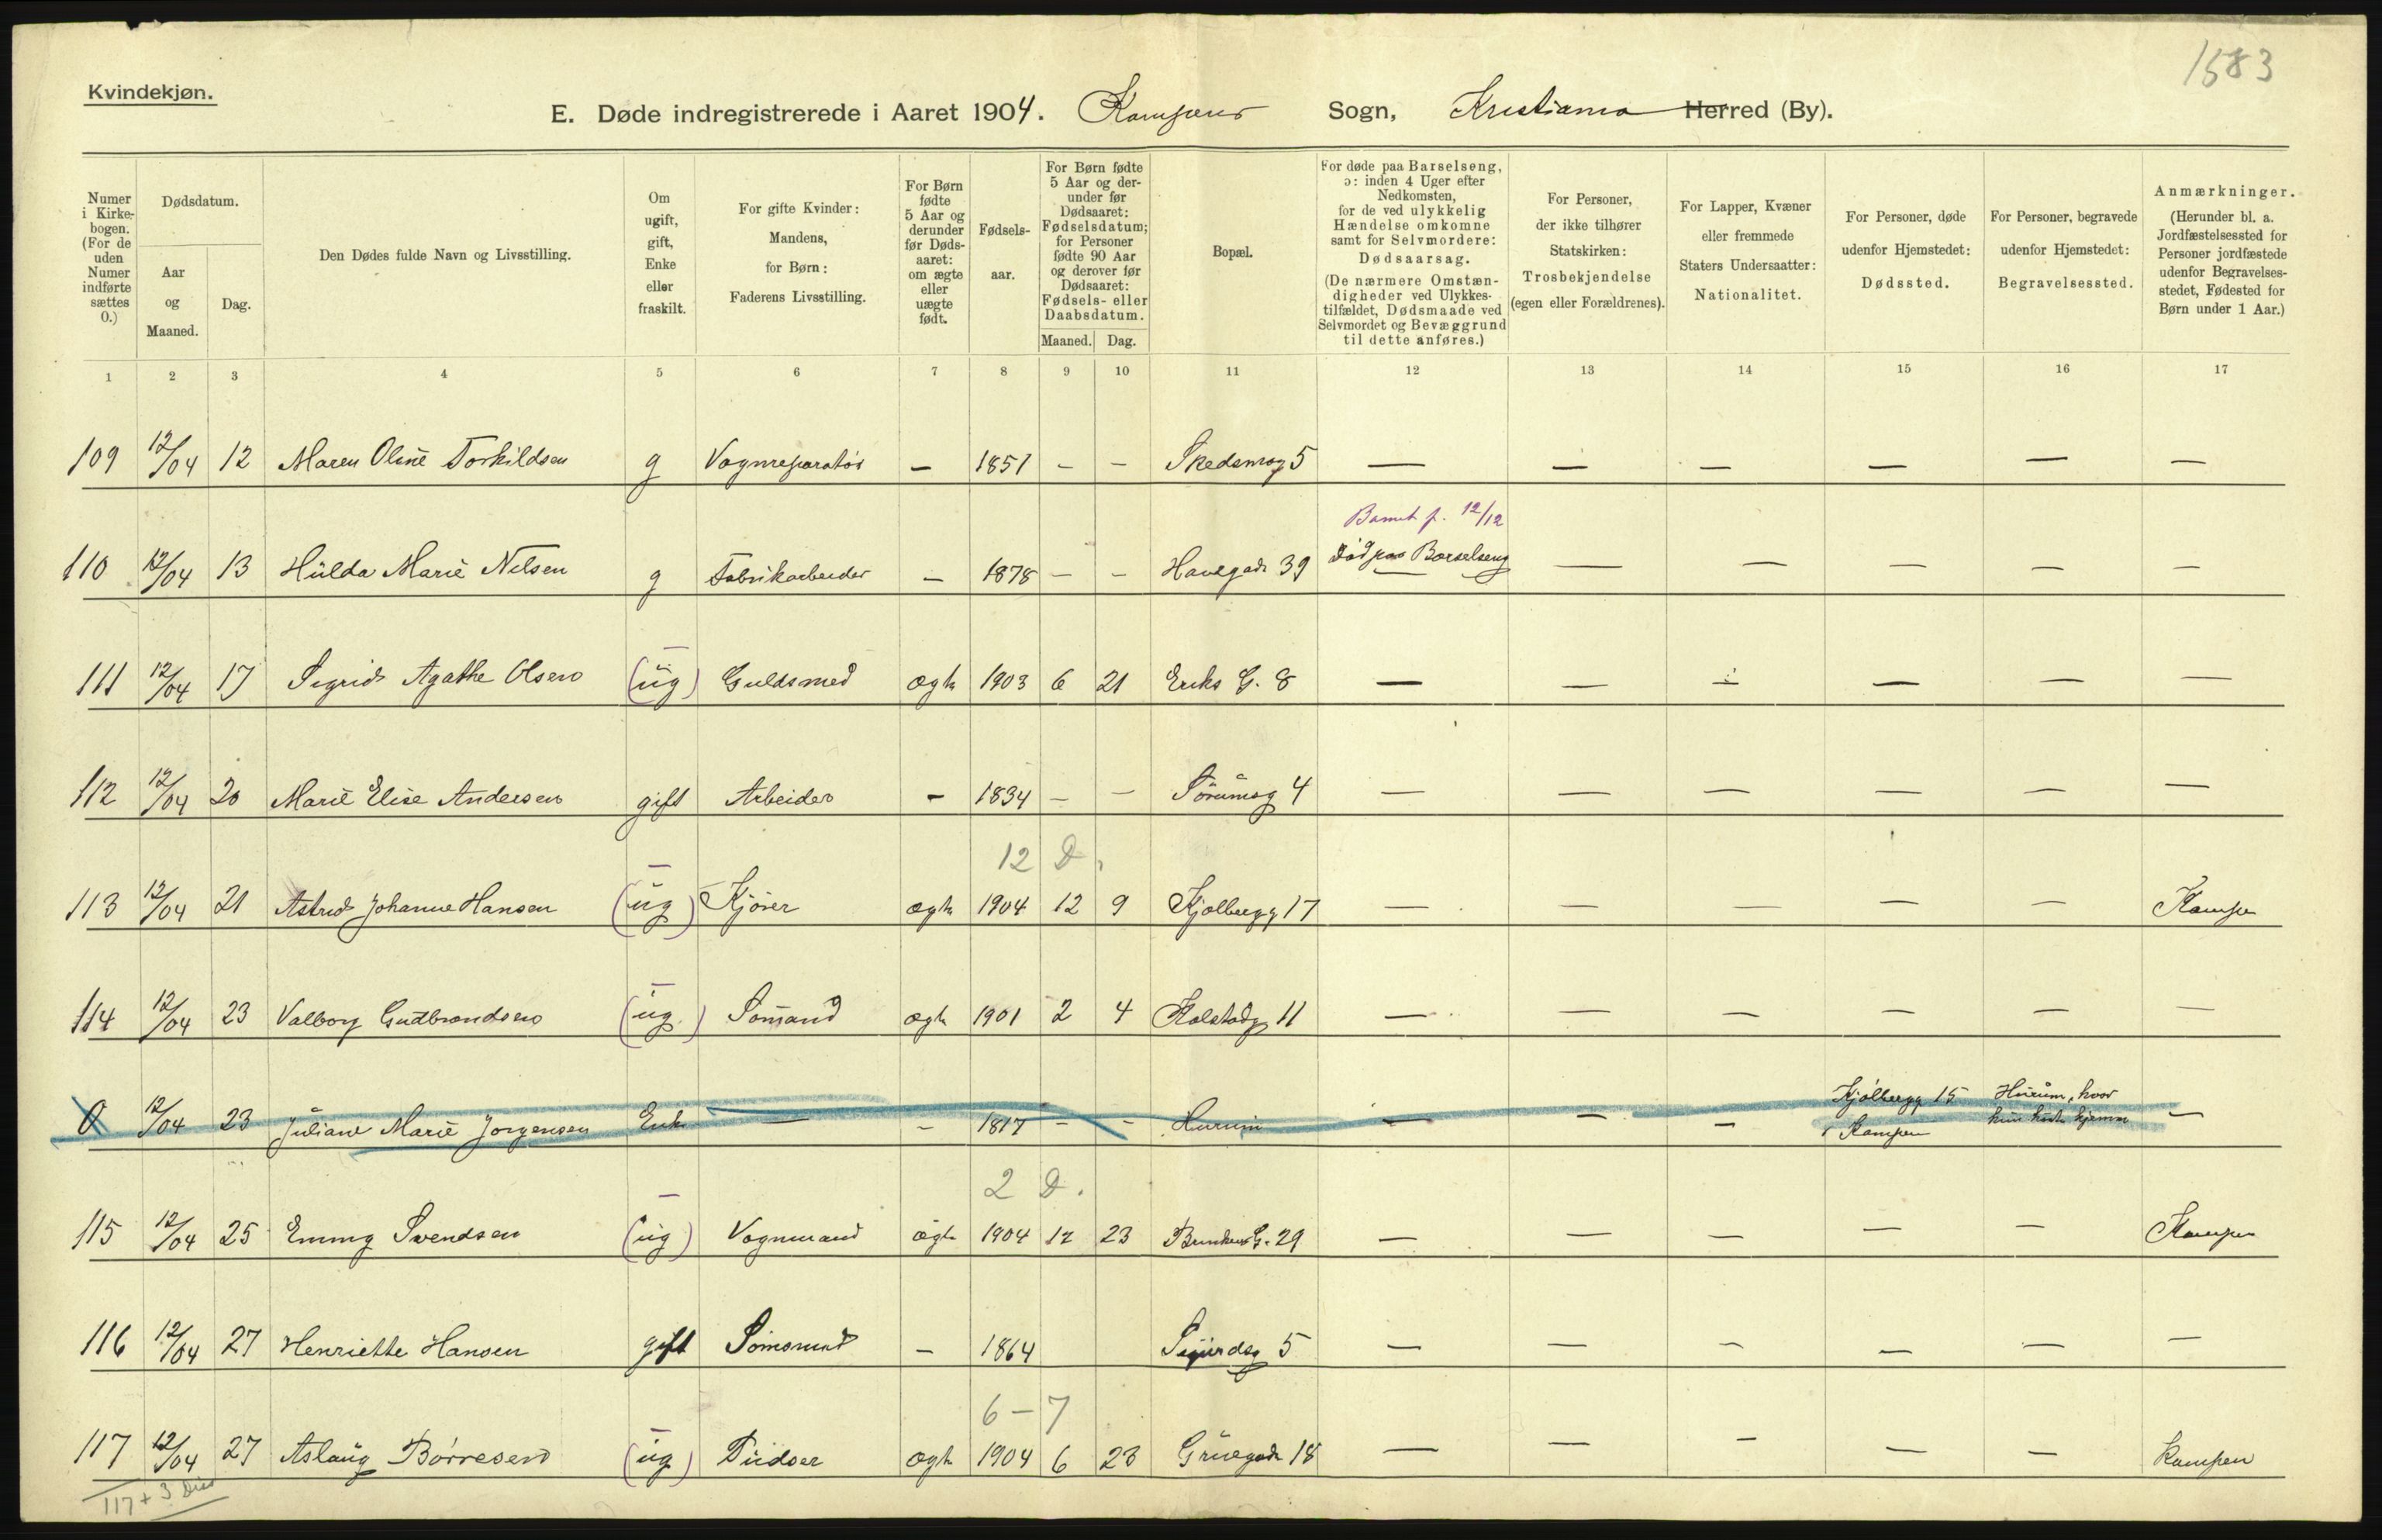 1583
Kvindekjøn.
E. Døde indregistrerede i Aaret 1904. Kampens Sogn, Kristiania Herred (By).
Numer i Kirkebogen. (For de uden Numer indførte sættes 0.)
Dødsdatum.
Aar og Maaned.
Dag.
Den Dødes fulde Navn og Livsstilling.
Om ugift, gift, Enke eller fraskilt.
For gifte Kvinder: Mandens, for Børn: Faderens Livsstilling.
For Børn fødte 5 Aar og derunder før Dødsaaret: om ægte eller uægte født.
Fødselsaar.
For Børn fødte 5 Aar og derunder før Dødsaaret: Fødselsdatum; for Personer fødte 90 Aar og derover før Dødsaaret: Fødsels- eller Daabsdatum.
Maaned. Dag.
Bopæl.
For døde paa Barselseng, ɔ: inden 4 Uger efter Nedkomsten, for de ved ulykkelig Hændelse omkomne samt for Selvmordere: Dødsaarsag. (De nærmere Omstændigheder ved Ulykkestilfældet, Dødsmaade ved Selvmordet og Bevæggrund til dette anføres.)
For Personer, der ikke tilhører Statskirken: Trosbekjendelse (egen eller Forældrenes).
For Lapper, Kvæner eller fremmede Staters Undersaatter: Nationalitet.
For Personer, døde udenfor Hjemstedet: Dødssted.
For Personer, begravede udenfor Hjemstedet: Begravelsessted.
Anmærkninger. (Herunder bl. a. Jordfæstelsessted for Personer jordfæstede udenfor Begravelsesstedet, Fødested for Børn under 1 Aar.)
1 2 3 4 5 6 7 8 9 10 11 12 13 14 15 16 17
109 12/04 12 Maren Oline Torkildsen g Vognreparatør – 1851 – – Skedsmog 5 — — — — — —
Barnet f. 12/12
110 12/04 13 Hulda Marie Nilsen g Fabrikarbeider – 1878 – – Havegade 39 død paa Barselseng — — — — —
111 12/04 17 Sigrid Agathe Olsen (ug) Guldsmed ægte 1903 6 21 Eriks G. 8 — — — — — —
112 12/04 20 Marie Elise Andersen gift Arbeider – 1834 – – Sørumsg 4 — — — — — —
12 D.
113 12/04 21 Astrid Johanne Hansen (ug) Kjører ægte 1904 12 9 Kjølbergg 17 — — — — — Kampen
114 12/04 23 Valborg Gudbrandsen (ug.) Sømand ægte 1901 2 4 Kolstadg 11 — — — — — —
0 12/04 23 Juliane Marie Jørgensen Enke — – 1817 – – Hurum — — — Kjølbergg 15 Kampen Hurum, hvor hun hørte hjemme —
2 D.
115 12/04 25 Emmy Svendsen (ug) Vognmand ægte 1904 12 23 Brinkens G. 29 — — — — — Kampen
116 12/04 27 Henriette Hansen gift Sømand – 1864 Sigurdsg 5 — — — — — —
6 – 7
117 12/04 27 Aslaug Børresen (ug) Pudser ægte 1904 6 23 Grüegade 18 — — — — — Kampen
117 + 3